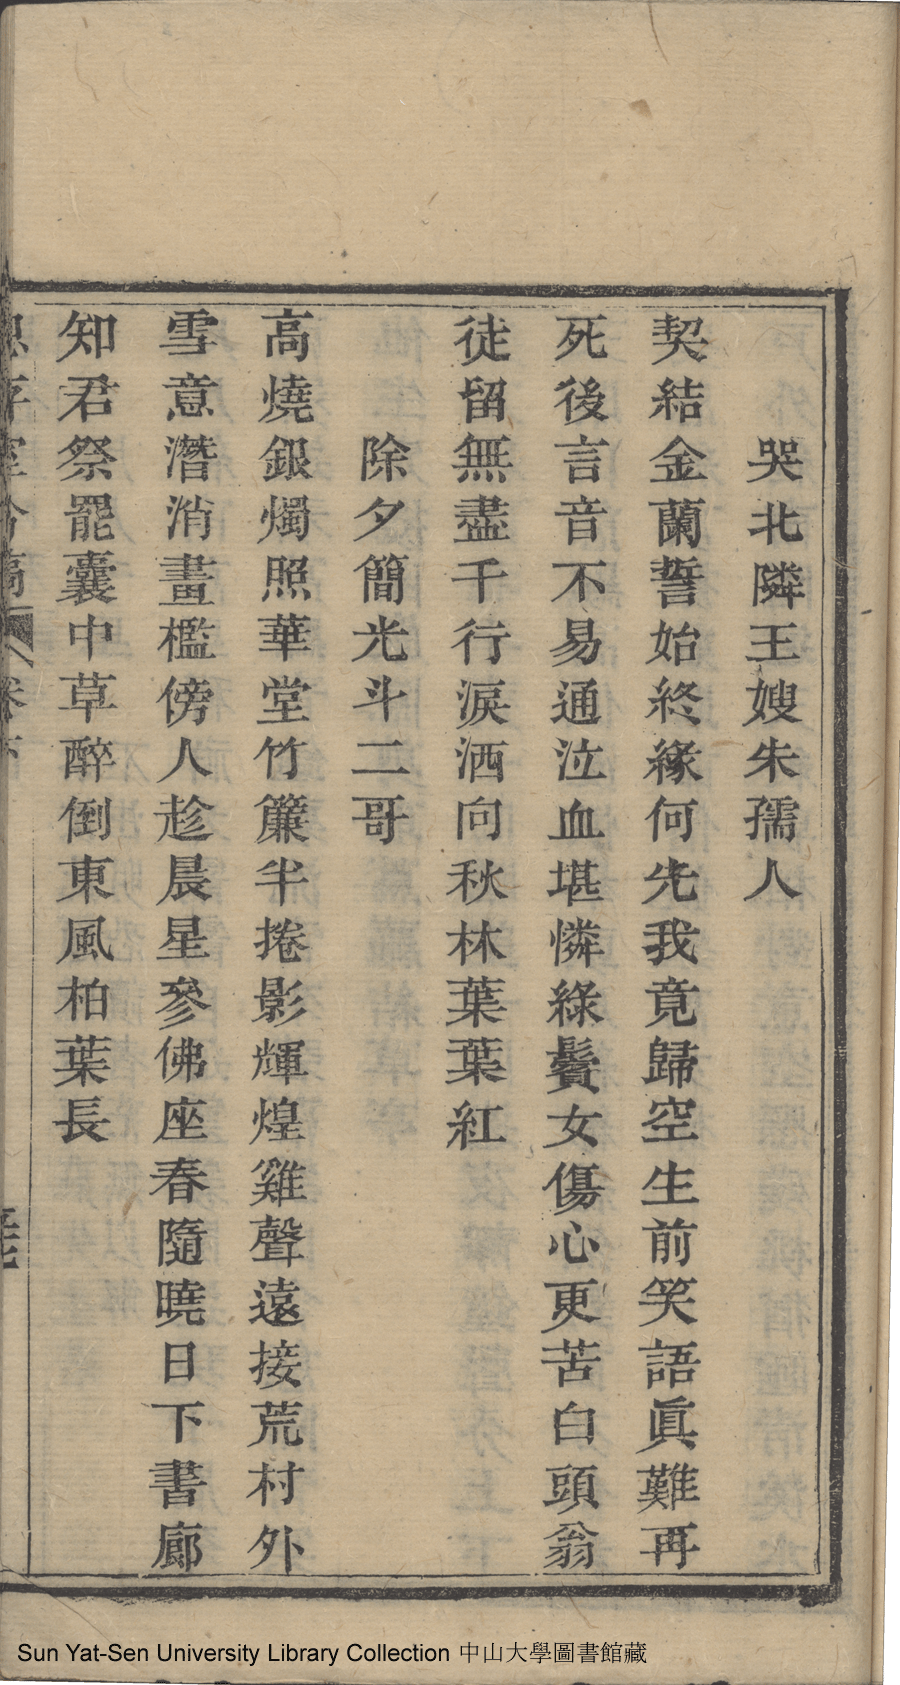 哭北隣王嫂朱孺人
契結金蘭誓始終緣何先我竟歸空生前笑語眞難再
死後言音不易通泣血堪憐綠鬢女傷心更苦白頭翁
徒留無盡千行淚洒向秋林葉葉紅
除夕簡光斗二哥
高燒銀燭照華堂竹簾半捲影輝煌雞聲遠接荒村外
雪意潛消畫檻傍人趁晨星參佛座春隨曉日下書廊
知君祭罷囊中草醉倒東風柏葉長
Sun Yat-Sen University Library Collection 中山大學圖書館藏